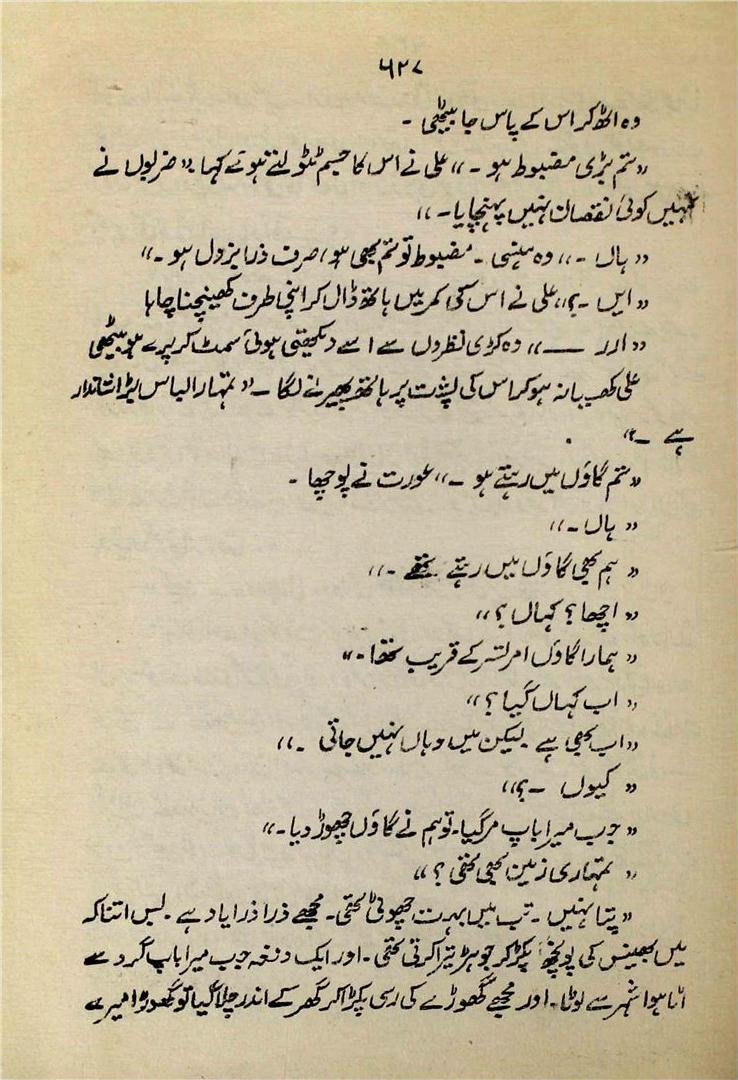 ۶۲۷
وہ اٹھ کر اس کے پاس جا بیٹھی -
«تم بڑی مضبوط ہو - » علی نے اس کا جسم ٹٹولتے ہوئے کہا «ضربوں نے
تمہیں کوئی نقصان نہیں پہنچایا - »
« ہاں - » وہ ہنسی - مضبوط تو تم بھی ہو، صرف ذرا بزدل ہو - »
« ایں - ؟» علی نے اس کی کمر میں ہاتھ ڈال کر اپنی طرف کھینچنا چاہا
« ارر —— » وہ کڑی نظروں سے اسے دیکھتی ہوئی سمٹ کر پرے ہو بیٹھی
علی کھسیانہ ہو کر اس کی پشت پر ہاتھ پھیرنے لگا - « تمہارا لباس بڑا شاندار
ہے - »
« تم گاؤں میں رہتے ہو - » عورت نے پوچھا -
« ہاں - »
« ہم بھی گاؤں میں رہتے تھے - »
« اچھا ؟ کہاں ؟ »
« ہمارا گاؤں امرتسر کے قریب تھا - »
« اب کہاں گیا ؟ »
« اب بھی ہے لیکن میں وہاں نہیں جاتی - »
« کیوں - ؟ »
« جب میرا باپ مر گیا - تو ہم نے گاؤں چھوڑ دیا - »
« تمہاری زمین بھی تھی ؟ »
« پتا نہیں - تب میں بہت چھوٹی تھی - مجھے ذرا ذرا یاد ہے - بس اتنا کہ
میں بھینس کی پونچھ پکڑ کر جوہڑ تیرا کرتی تھی - اور ایک دفعہ جب میرا باپ گرد سے
اٹا ہوا شہر سے لوٹا - اور مجھے گھوڑے کی رسی پکڑا کر گھر کے اندر چلا گیا تو گھوڑا میرے